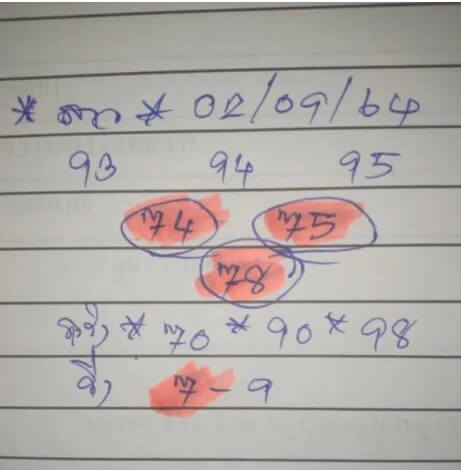 * ลาว * 02/09/64
93 94 95
74 75
78
* 70 * 90 * 98
7 - 9